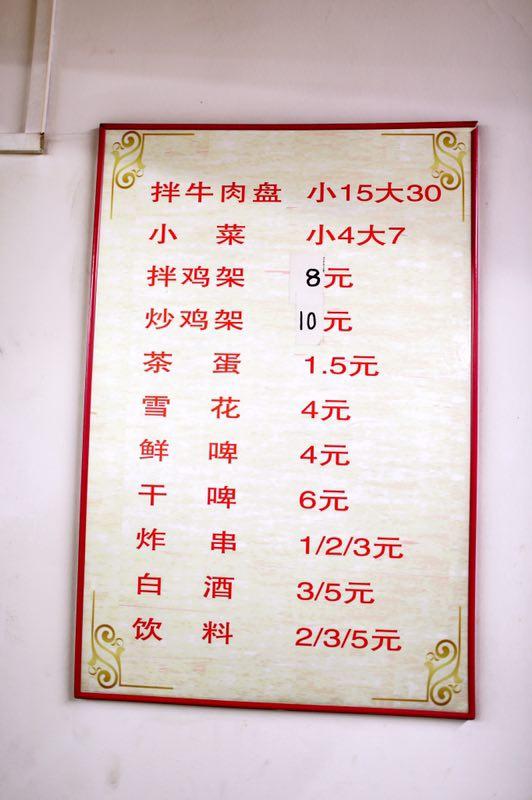 拌牛肉盘 小15大30
小菜 小4大7
拌鸡架 8元
炒鸡架 10元
茶蛋 1.5元
雪花 4元
鲜啤 4元
干啤 6元
炸串 1/2/3元
白酒 3/5元
饮料 2/3/5元